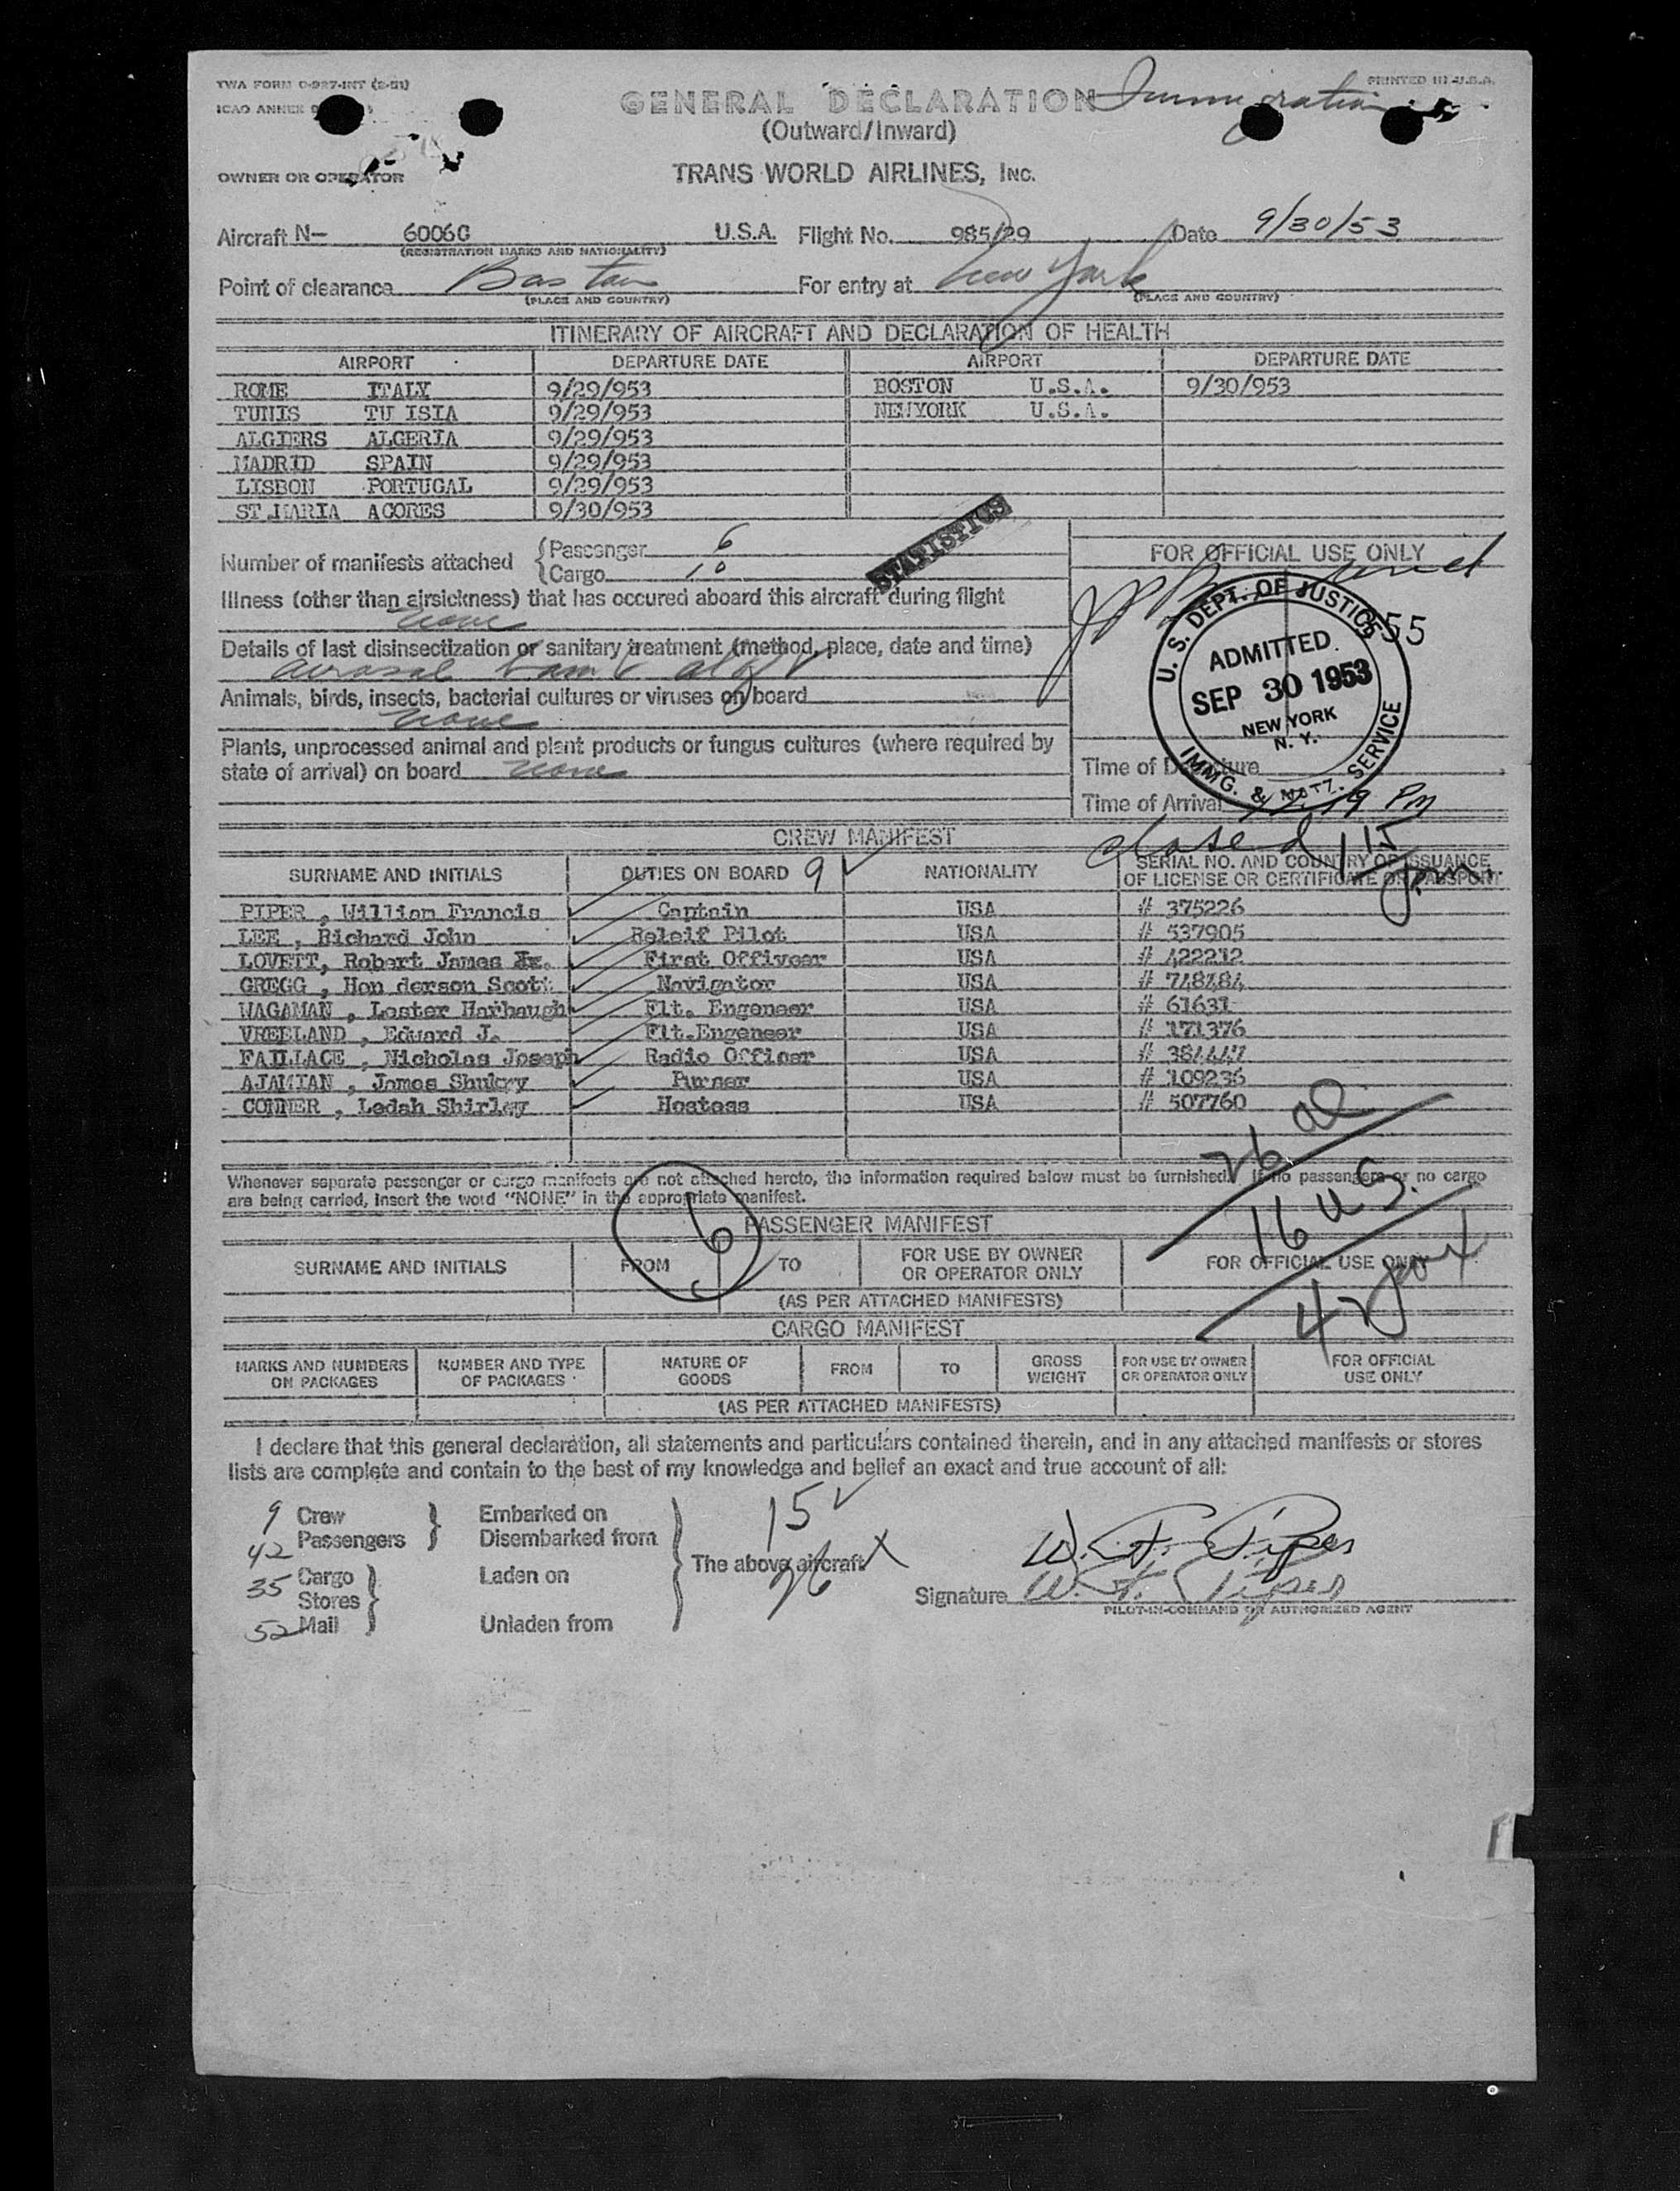 TWA FORM O-927-INT (2-51)
PRINTED IN U.S.A.
ICAO ANNEX 9
GENERAL DECLARATION Immigration
(Outward/Inward)
OWNER OR OPERATOR
TRANS WORLD AIRLINES, INC.
Aircraft N- 6006C U.S.A. Flight No. 985/29 Date 9/30/53
(REGISTRATION MARKS AND NATIONALITY)
Point of clearance Boston For entry at New York
(PLACE AND COUNTRY) (PLACE AND COUNTRY)
ITINERARY OF AIRCRAFT AND DECLARATION OF HEALTH
AIRPORT DEPARTURE DATE AIRPORT DEPARTURE DATE
ROME ITALY 9/29/953 BOSTON U.S.A. 9/30/953
TUNIS TU ISIA 9/29/953 NEWYORK U.S.A.
ALGIERS ALGERIA 9/29/953
MADRID SPAIN 9/29/953
LISBON PORTUGAL 9/29/953
ST.MARIA ACORES 9/30/953
STATISTICS
Number of manifests attached { Passenger 6
{ Cargo 10
FOR OFFICIAL USE ONLY
Illness (other than airsickness) that has occured aboard this aircraft during flight
none
Details of last disinsectization or sanitary treatment (method, place, date and time)
aerosol bomb aloft
Animals, birds, insects, bacterial cultures or viruses on board
none
Plants, unprocessed animal and plant products or fungus cultures (where required by
state of arrival) on board none
U. S. DEPT. OF JUSTICE
55
ADMITTED
SEP 30 1953
NEW YORK
N. Y.
IMMG. & NATZ. SERVICE
Time of Departure
Time of Arrival 19 PM
closed 115 pm.
CREW MANIFEST
SURNAME AND INITIALS DUTIES ON BOARD 9 NATIONALITY SERIAL NO. AND COUNTRY OF ISSUANCE
OF LICENSE OR CERTIFICATE OR PASSPORT
PIPER , William Francis Captain USA # 375226
LEE , Richard John Releif Pilot USA # 537905
LOVETT, Robert James Jr. First Offivcer USA # 422212
GREGG , Hen derson Scott Navigator USA # 748484
WAGAMAN , Lester Harbaugh Flt. Engeneer USA # 61631
VREELAND , Edward J. Flt.Engeneer USA # 171376
FAILLACE , Nicholas Joseph Radio Officer USA # 384447
AJAMIAN , James Shukry Purser USA # 109236
CONNER , Ledah Shirley Hostess USA # 507760
26 al
16 US.
42
Whenever separate passenger or cargo manifests are not attached hereto, the information required below must be furnished. If no passengers or no cargo
are being carried, insert the word "NONE" in the appropriate manifest.
6
PASSENGER MANIFEST
SURNAME AND INITIALS FROM TO FOR USE BY OWNER
OR OPERATOR ONLY FOR OFFICIAL USE ONLY
(AS PER ATTACHED MANIFESTS)
CARGO MANIFEST
MARKS AND NUMBERS
ON PACKAGES NUMBER AND TYPE
OF PACKAGES NATURE OF
GOODS FROM TO GROSS
WEIGHT FOR USE BY OWNER
OR OPERATOR ONLY FOR OFFICIAL
USE ONLY
(AS PER ATTACHED MANIFESTS)
I declare that this general declaration, all statements and particulars contained therein, and in any attached manifests or stores
lists are complete and contain to the best of my knowledge and belief an exact and true account of all:
9 Crew Embarked on 15
42 Passengers Disembarked from
The above aircraft 26
35 Cargo Laden on
Stores
52 Mail Unladen from
W. F. Piper
Signature W. F. Piper
PILOT-IN-COMMAND OR AUTHORIZED AGENT